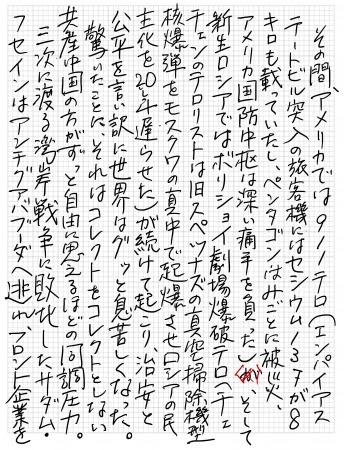 その間、アメリカでは911テロ(エンパイアス
テートビル突入の旅客機にはセシウム137が8
キロも載っていたし、ペンタゴンはみごとに被災、
アメリカ国防中枢は深い痛手を負った)が、そして
新生ロシアではボリショイ劇場爆破テロ(チェ
チェンのテロリストは旧スペツナズの真空掃除機型
核爆弾をモスクワの真中で起爆させロシアの民
主化を20年遅らせた)が続けて起こり治安と
公平を言い訳に世界はグッと見苦しくなった。
驚いたことに、それはコレクトをコレクトとしない
共産中国の方がずっと自由に思えるほどの同調圧力。
三次に渡る湾岸戦争に敗北したサダム・
フセインはアンテグアバブーダへ逃れ、フロント企業を